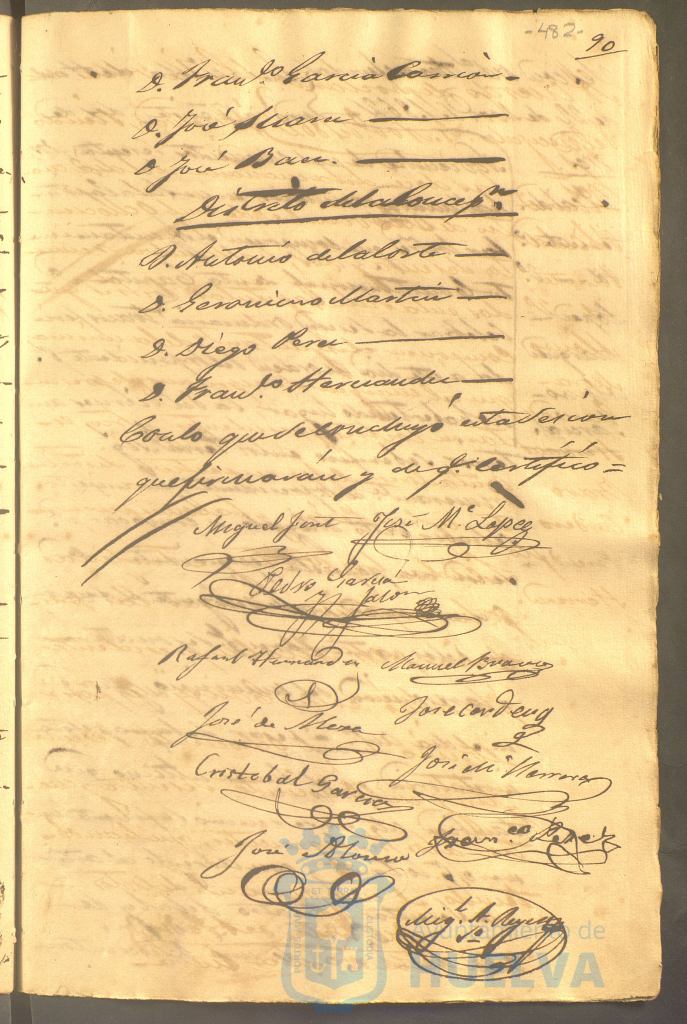 -482-
90
D. Franco. Garcia Carrion-
D. José Mora
D. José Baez.
Distrito de la Concepn.
D. Antonio de la Corte
D. Geronimo Martin
D. Diego Perez
D. Franco. Hernandez
Con lo que se concluyó esta sesion
que firmarán y de q. certifico=
Miguel Font José Ma. Lopez
Pedro Garcia
y Jalon
Rafael Hernandez Manuel Bravo
José de Mora Jose Cardena
Cristobal Garcia José Ma. Herrera
José Alonso Franco. Perez
Migl. A. Reyes
Ayuntamiento de
HUELVA